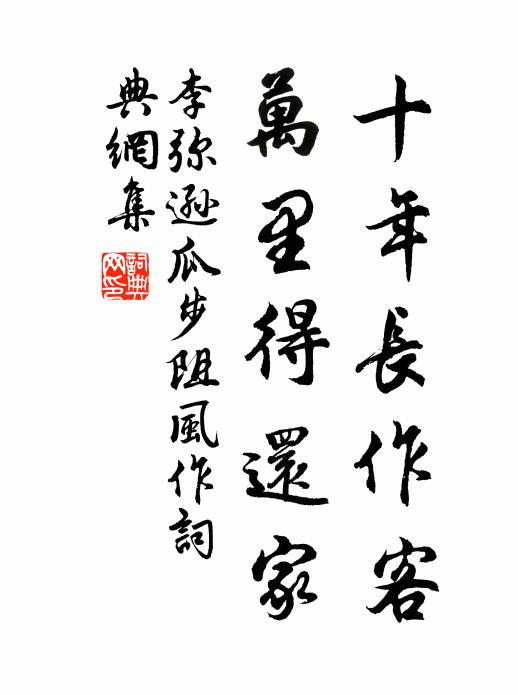 十年長作客
萬里得還家
李弥遜瓜步阻風作詞
典網集
詞典
网印